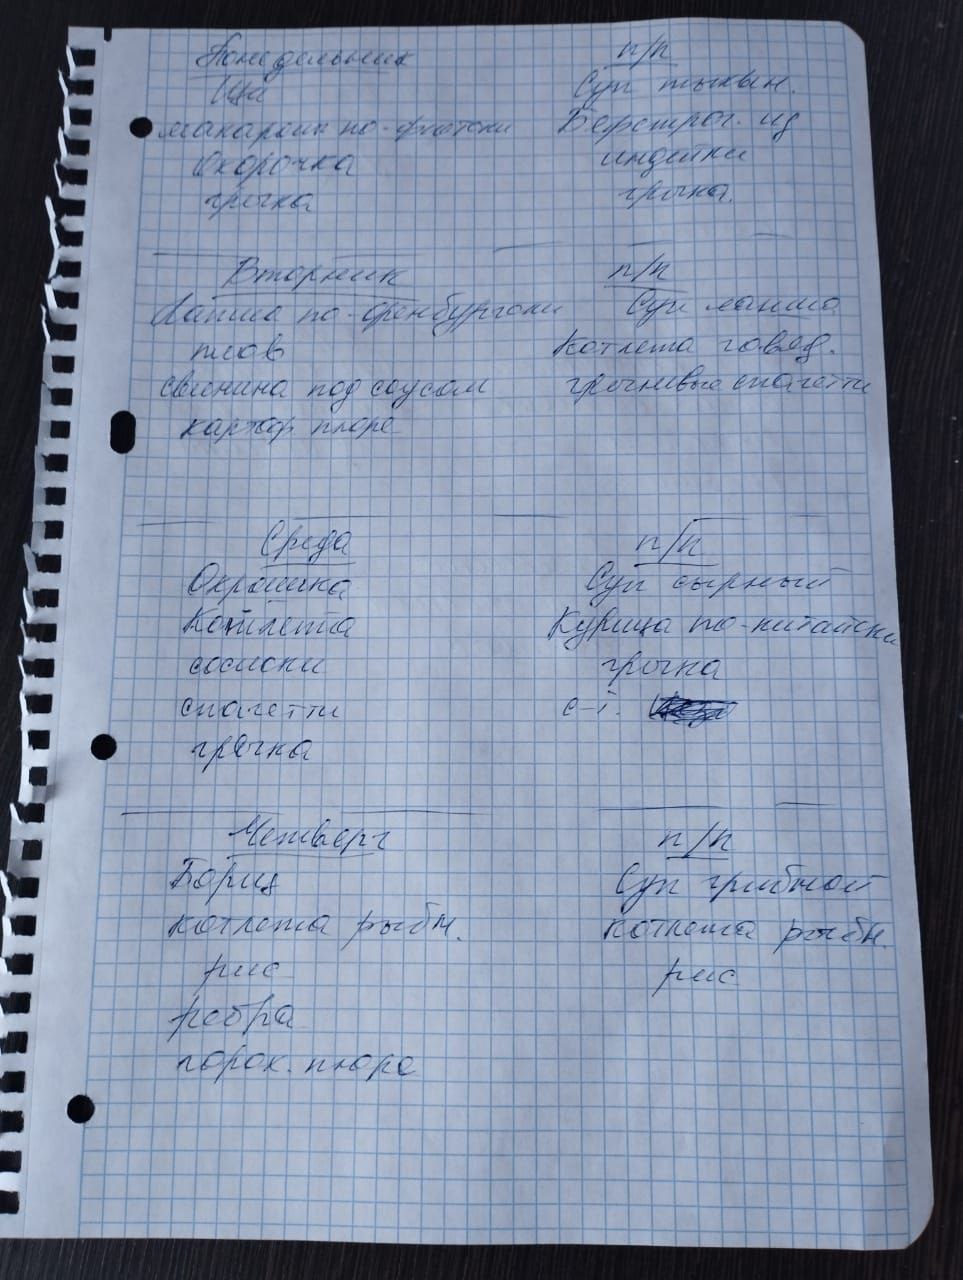 Понедельник
Щи
макароны по-флотски
Окорочка
гречка
п/п
Суп тыквен.
Бефстрог. из
индейки
гречка.
Вторник
Лапша по-оренбургски
плов
свинина под соусом
картоф. пюре
п/п
Суп лапша
Котлета говяд.
гречневые спагетти
Среда
Окрошка
Котлета
сосиски
спагетти
гречка
п/п
Суп сырный
Курица по-китайски
гречка
Четверг
Борщ
котлета рыбн.
рис
ребра
горох. пюре
п/п
Суп грибной
котлета рыбн.
рис